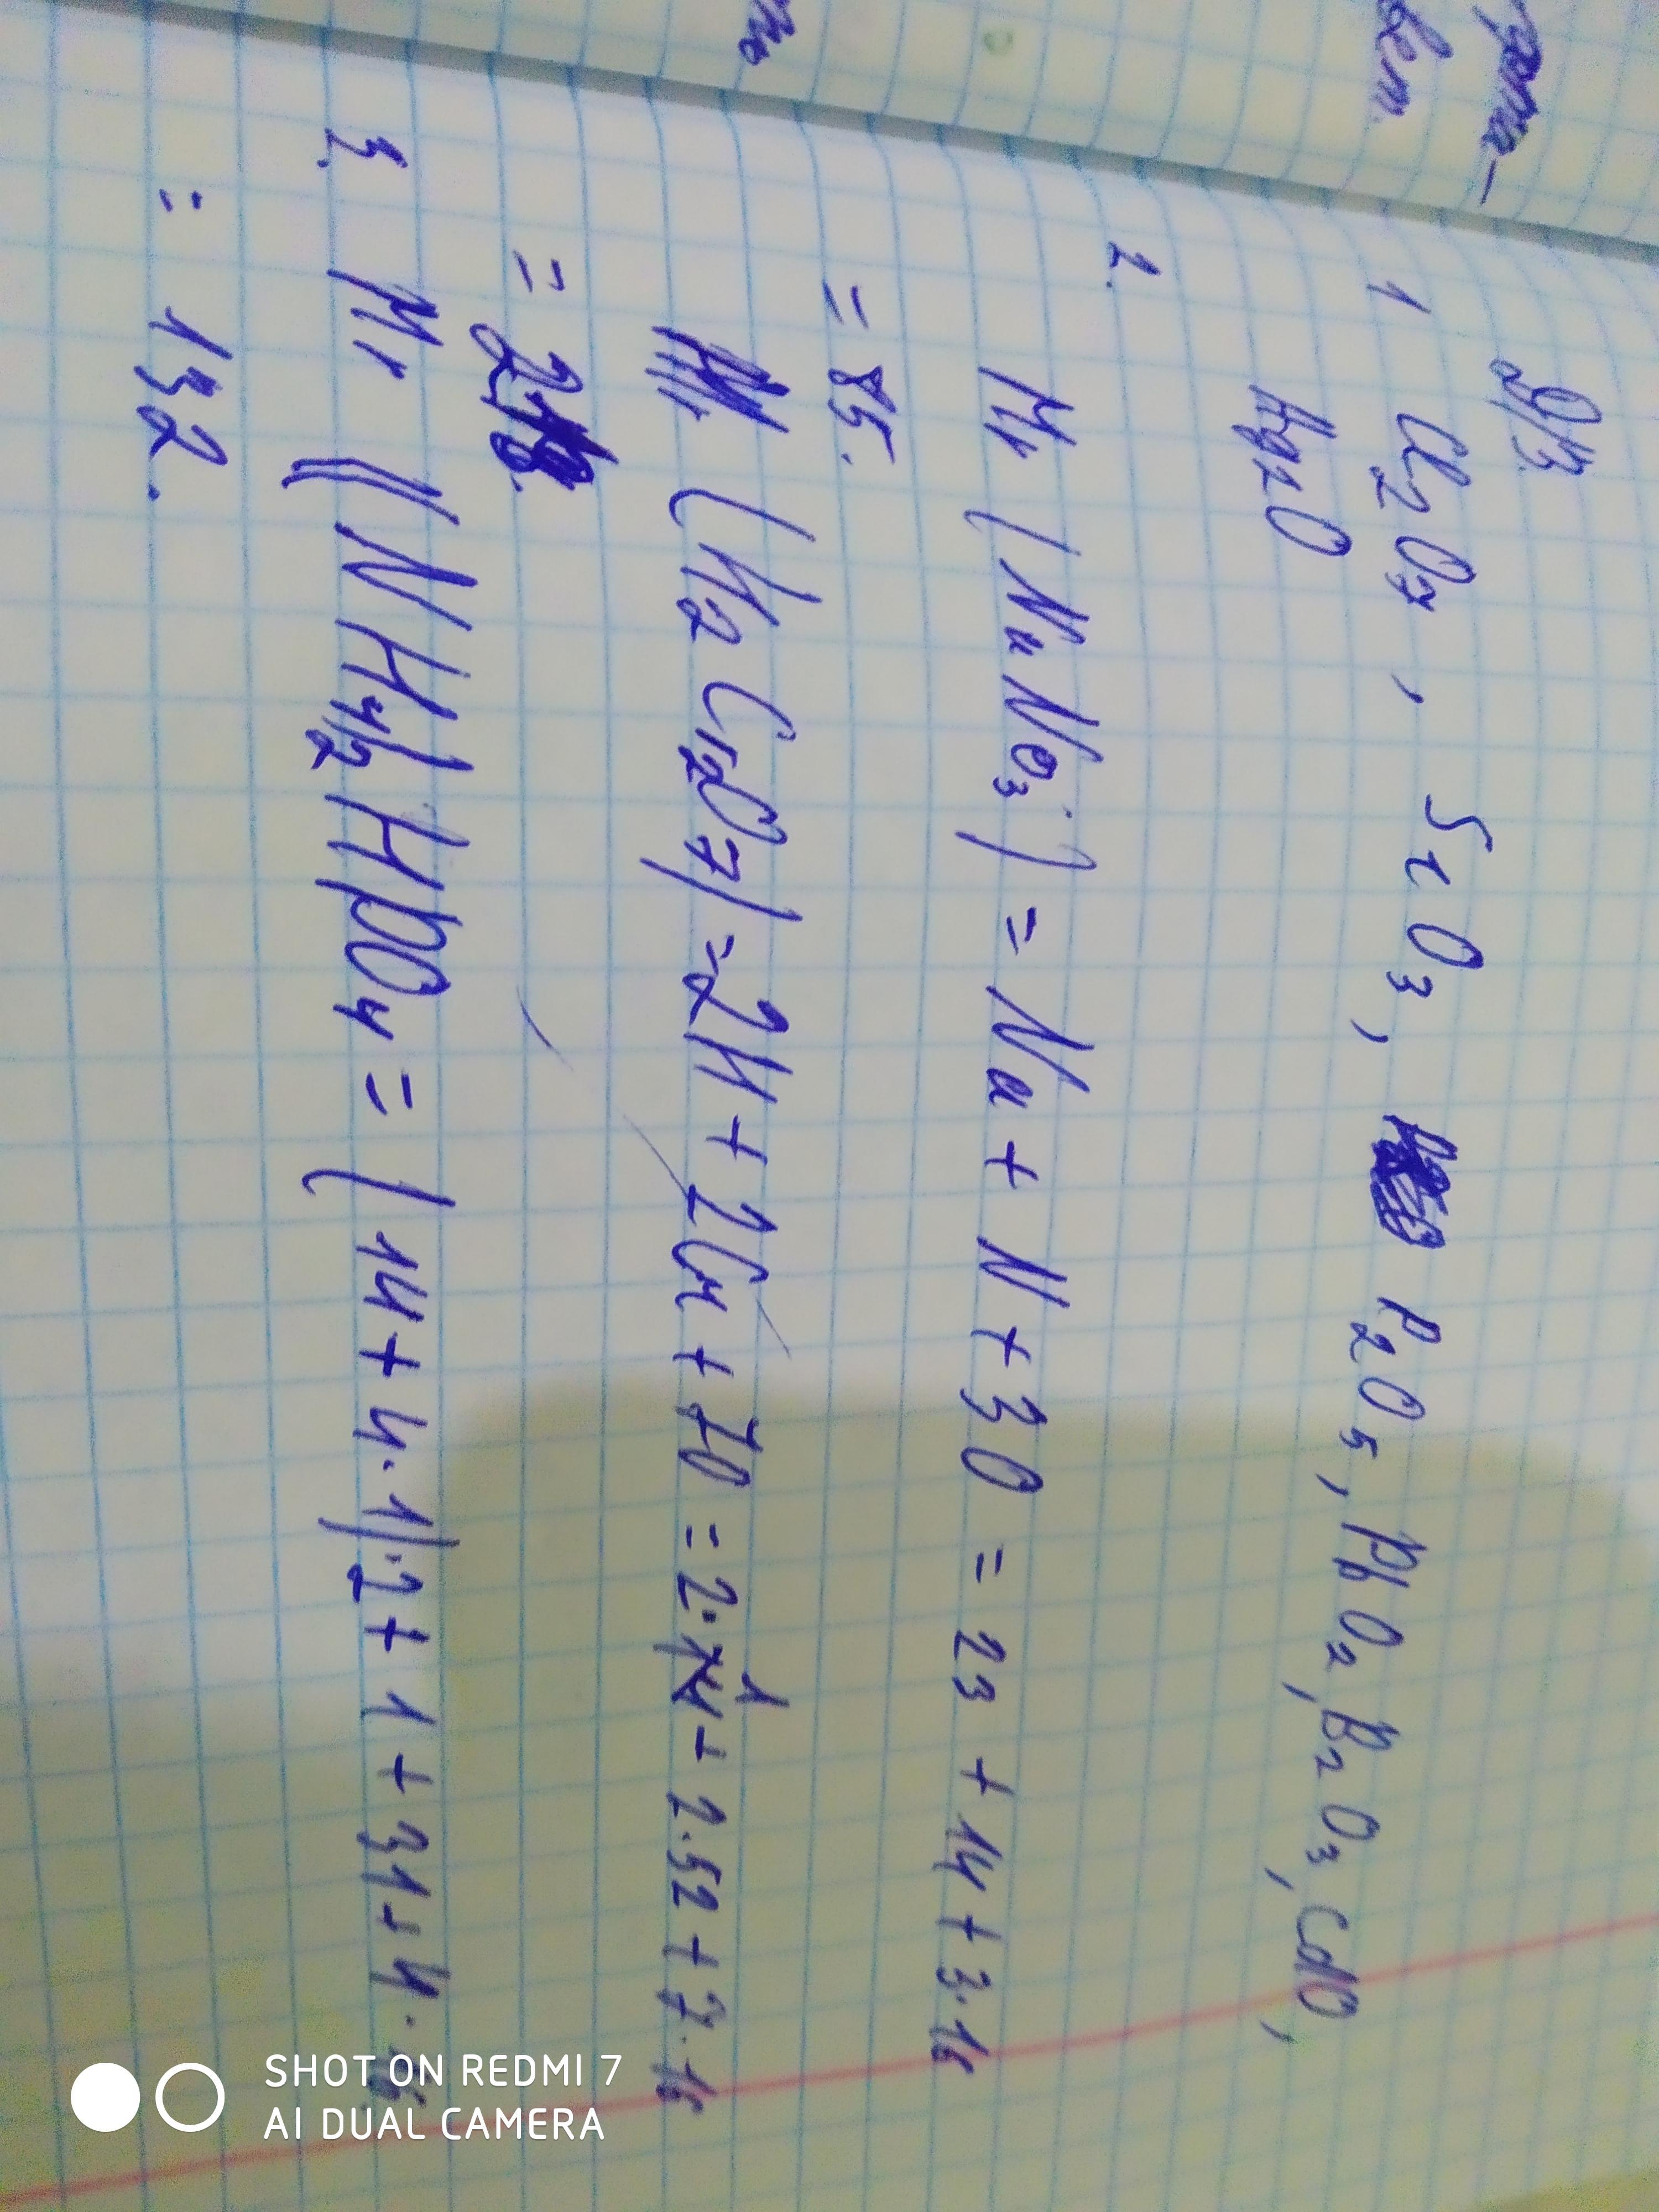 Д/з.
1 Cl2O7, SiO3, P2O5, PbO2, B2O3, CdO,
Ag2O
2. Mr (NaNO3) = Na + N + 3O = 23 + 14 + 3·16
= 85.
Mr (H2Cr2O7) = 2H + 2Cr + 7O = 2·1 + 2·52 + 7·16
= 218.
3. Mr ((NH4)2HPO4 = (14 + 4·1)·2 + 1 + 31 + 4·16
= 132.
SHOT ON REDMI 7
AI DUAL CAMERA